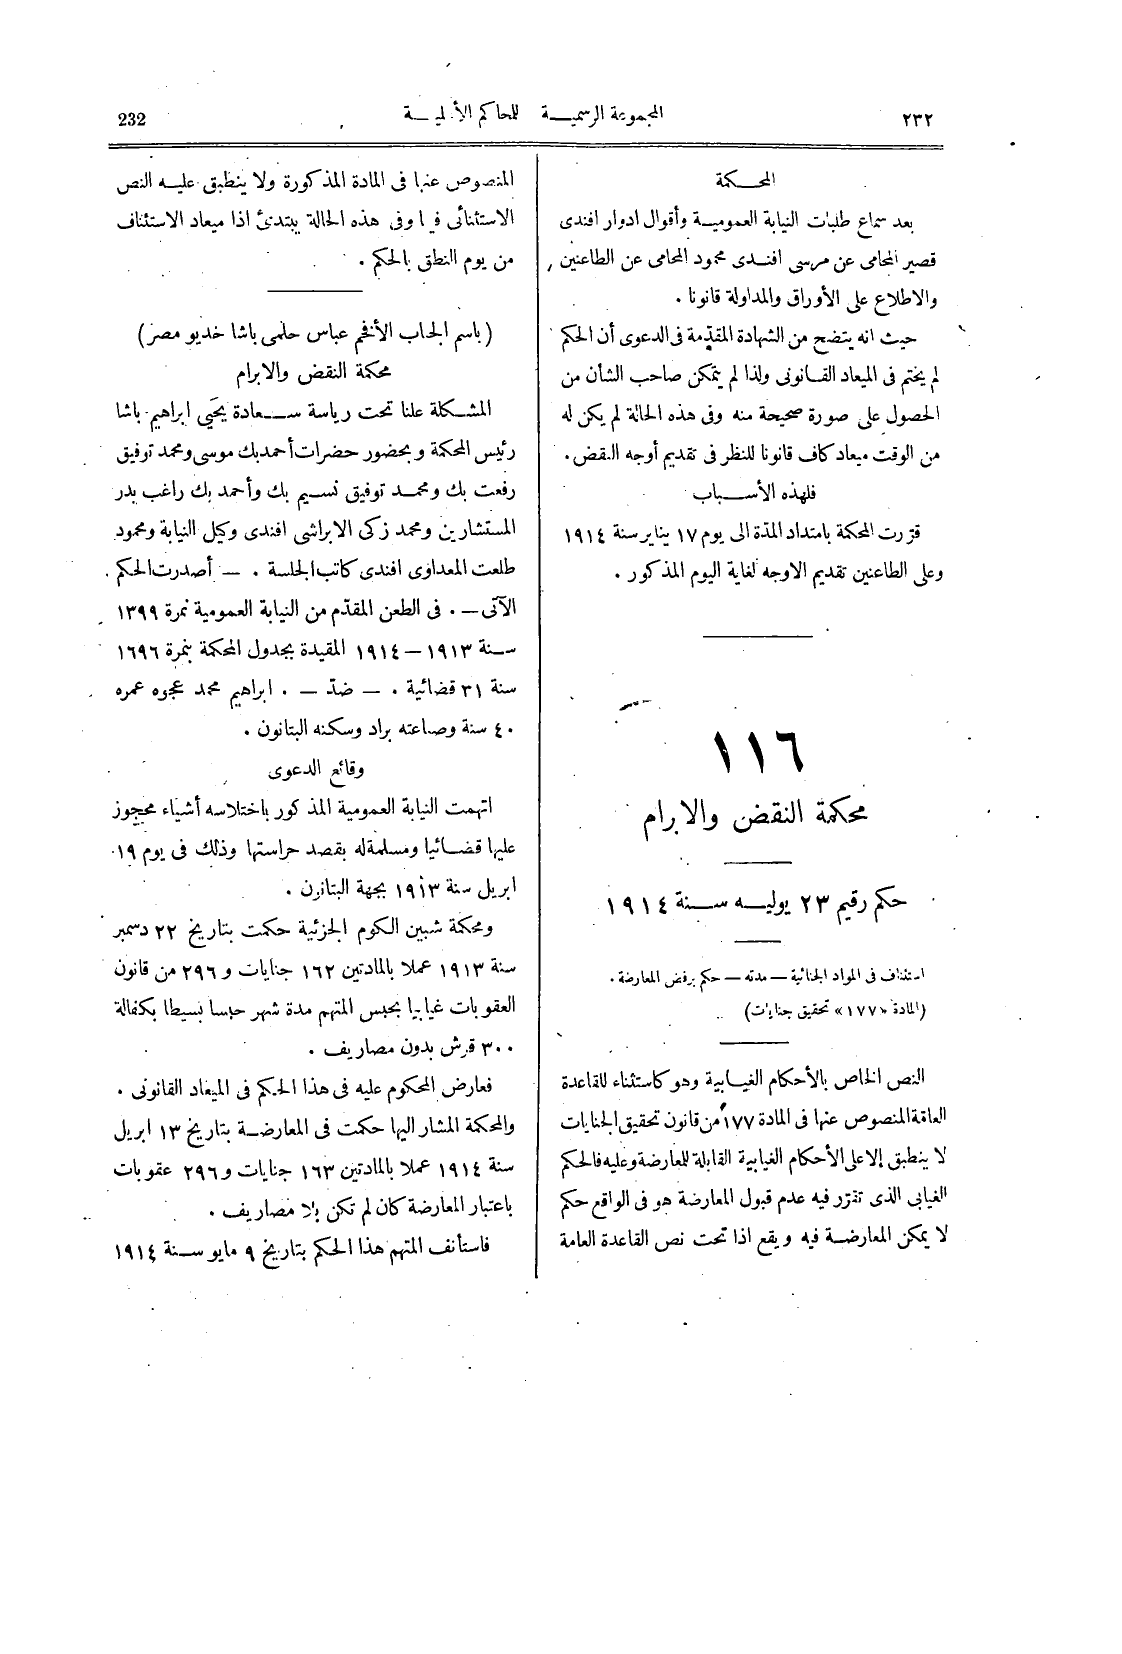 ٢٣٢ المجموعة الرسمية للمحاكم الأهلية 232
المحكمة
بعد سماع طلبات النيابة العمومية وأقوال ادوار افندى
قصير المحامى عن مرسى افندى محمود المحامى عن الطاعنين
والاطلاع على الأوراق والمداولة قانونا .
حيث انه يتضح من الشهادة المقدّمة فى الدعوى أن الحكم
لم يختم فى الميعاد القانونى ولذا لم يتمكن صاحب الشأن من
الحصول على صورة صحيحة منه وفى هذه الحالة لم يكن له
من الوقت ميعاد كاف قانونا للنظر فى تقديم أوجه النقض .
فلهذه الأسباب
قرّرت المحكمة بامتداد المدّة الى يوم ١٧ يناير سنة ١٩١٤
وعلى الطاعنين تقديم الاوجه لغاية اليوم المذكور .
١١٦
محكمة النقض والابرام
حكم رقيم ٢٣ يوليه سنة ١٩١٤
استئناف فى المواد الجنائية — مدته — حكم برفض المعارضة .
(المادة «١٧٧» تحقيق جنايات)
النص الخاص بالأحكام الغيابية وهو كاستثناء للقاعدة
العامّة المنصوص عنها فى المادة ١٧٧ من قانون تحقيق الجنايات
لا ينطبق إلا على الأحكام الغيابية القابلة للمعارضة وعليه فالحكم
الغيابى الذى تقرّر فيه عدم قبول المعارضة هو فى الواقع حكم
لا يمكن المعارضة فيه ويقع اذا تحت نص القاعدة العامة
المنصوص عنها فى المادة المذكورة ولا ينطبق عليه النص
الاستثنائى فيها وفى هذه الحالة يبتدئ اذا ميعاد الاستئناف
من يوم النطق بالحكم .
(باسم الجناب الأفخم عباس حلمى باشا خديو مصر)
محكمة النقض والابرام
المشكلة علنا تحت رياسة سعادة يحيى ابراهيم باشا
رئيس المحكمة وبحضور حضرات أحمد بك موسى ومحمد توفيق
رفعت بك ومحمد توفيق نسيم بك وأحمد بك راغب بدر
المستشارين ومحمد زكى الابراشى افندى وكيل النيابة ومحمود
طلعت المعداوى افندى كاتب الجلسة . — أصدرت الحكم
الآتى — . فى الطعن المقدّم من النيابة العمومية نمرة ١٣٩٩
سنة ١٩١٣ – ١٩١٤ المقيدة بجدول المحكمة بنمرة ١٦٩٦
سنة ٣١ قضائية . — ضدّ — . ابراهيم محمد عجوه عمره
٤٠ سنة وصناعته براد وسكنه البتانون .
وقائع الدعوى
اتهمت النيابة العمومية المذكور باختلاسه أشياء محجوز
عليها قضائيا ومسلمة له بقصد حراستها وذلك فى يوم ١٩
ابريل سنة ١٩١٣ بجهة البتانون .
ومحكمة شبين الكوم الجزئية حكمت بتاريخ ٢٢ دسمبر
سنة ١٩١٣ عملا بالمادتين ١٦٢ جنايات و ٢٩٦ من قانون
العقوبات غيابيا بحبس المتهم مدة شهر حبسا بسيطا بكفالة
٣٠٠ قرش بدون مصاريف .
فعارض المحكوم عليه فى هذا الحكم فى الميعاد القانونى .
والمحكمة المشار اليها حكمت فى المعارضة بتاريخ ١٣ ابريل
سنة ١٩١٤ عملا بالمادتين ١٦٣ جنايات و ٢٩٦ عقوبات
باعتبار المعارضة كان لم تكن بلا مصاريف .
فاستأنف المتهم هذا الحكم بتاريخ ٩ مايو سنة ١٩١٤